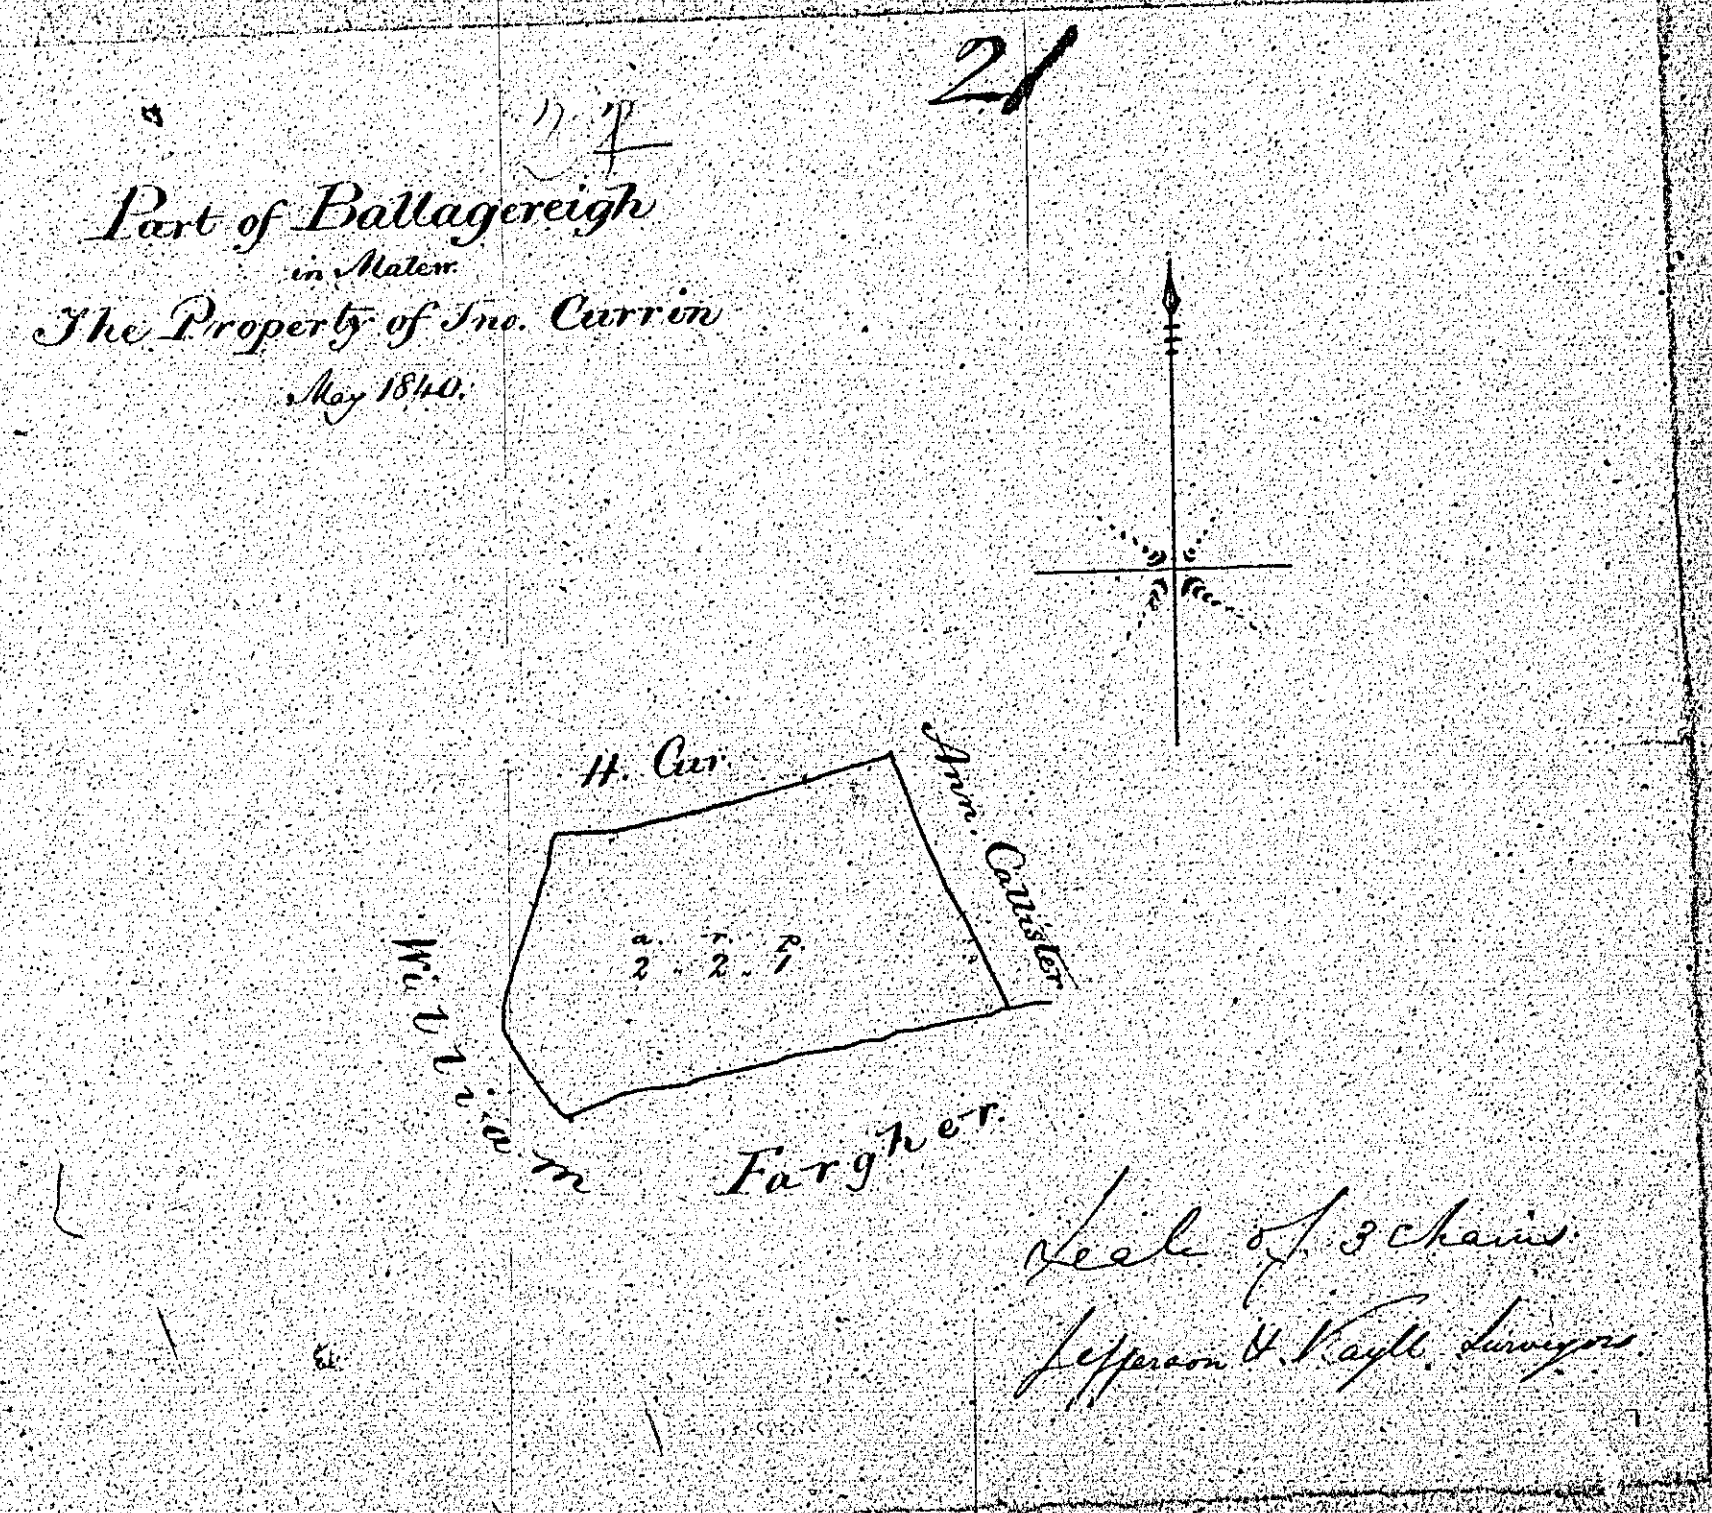 21
Part of Ballagereigh
in Malew
The Property of Jno. Currin
May 1840.
H. Cur.
Ann. Callister
a. r. p.
2 . 2 . 1
William Fargher.
Scale of 3 chains.
Jefferson & Kayll. Surveyors.